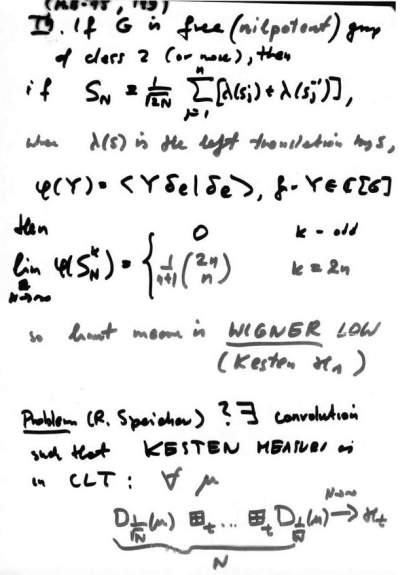 II. If G is free (nilpotent) group
of class 2 (or more), then
if S_N = 1/√2N Σ_{j=1}^{n} [λ(s_j) + λ(s_j^{-1})],
when λ(s) is the left translation by s,
φ(Y) = <Y δ_e | δ_e>, for Y ∈ C[G]
then
lim_{N→∞} φ(S_N^k) = { 0 k - odd
1/(n+1) (2n n) k = 2n
so limit measure is WIGNER LOW
(Kesten ϰ_1)
Problem (R. Speicher) ? ∃ convolution
such that KESTEN MEASURE is
in CLT: ∀ μ
D_{1/√N}(μ) ⊞_t ... ⊞_t D_{1/√N}(μ) → ϰ_t
N→∞
N